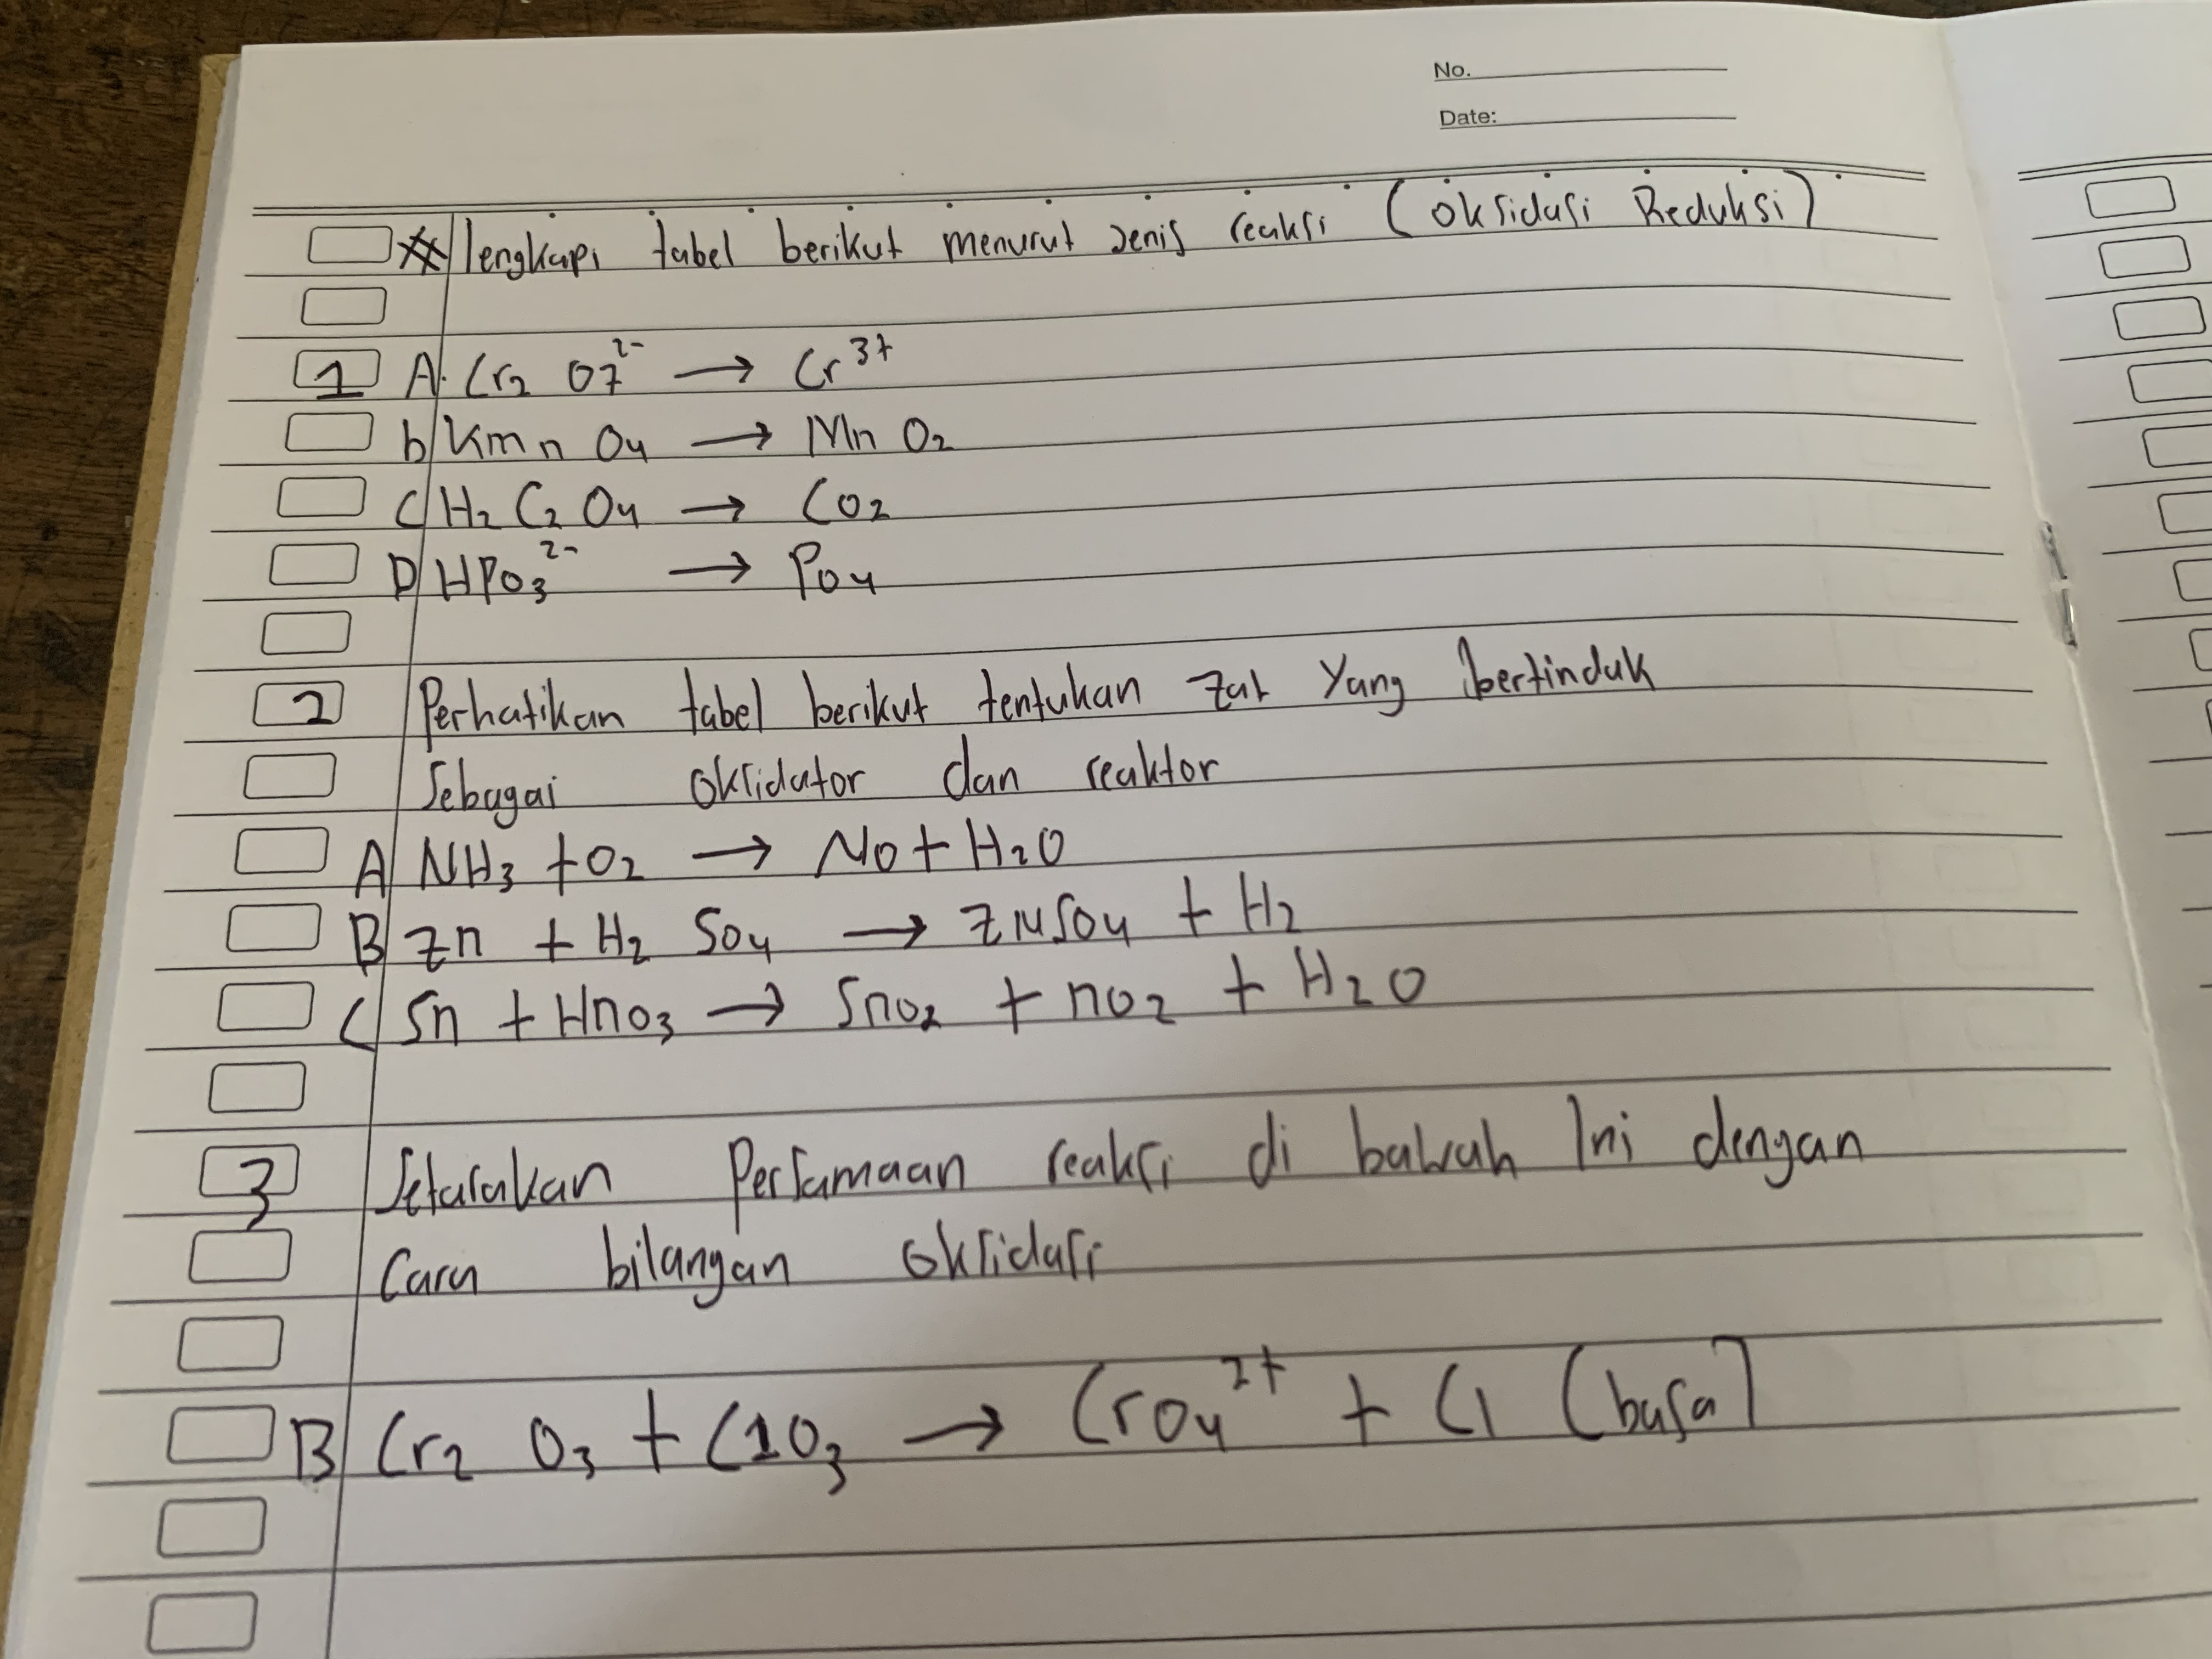 No.
Date:
* lengkapi tabel berikut menurut Jenis reaksi (oksidasi Reduksi)
1 A. Cr2 O7²⁻ → Cr³⁺
b Kmn O4 → Mn O2
C H2 C2 O4 → CO2
D HPO3²⁻ → PO4
2 Perhatikan tabel berikut tentukan zat Yang bertindak
Sebagai oksidator dan reaktor
A NH3 + O2 → NO + H2O
B Zn + H2 SO4 → ZNSO4 + H2
C Sn + HnO3 → SnO2 + nO2 + H2O
3 Setarakan Persamaan reaksi di bawah Ini dengan
Cara bilangan oksidasi
B Cr2 O3 + C1O3 → CrO4²⁺ + C1 (basa)